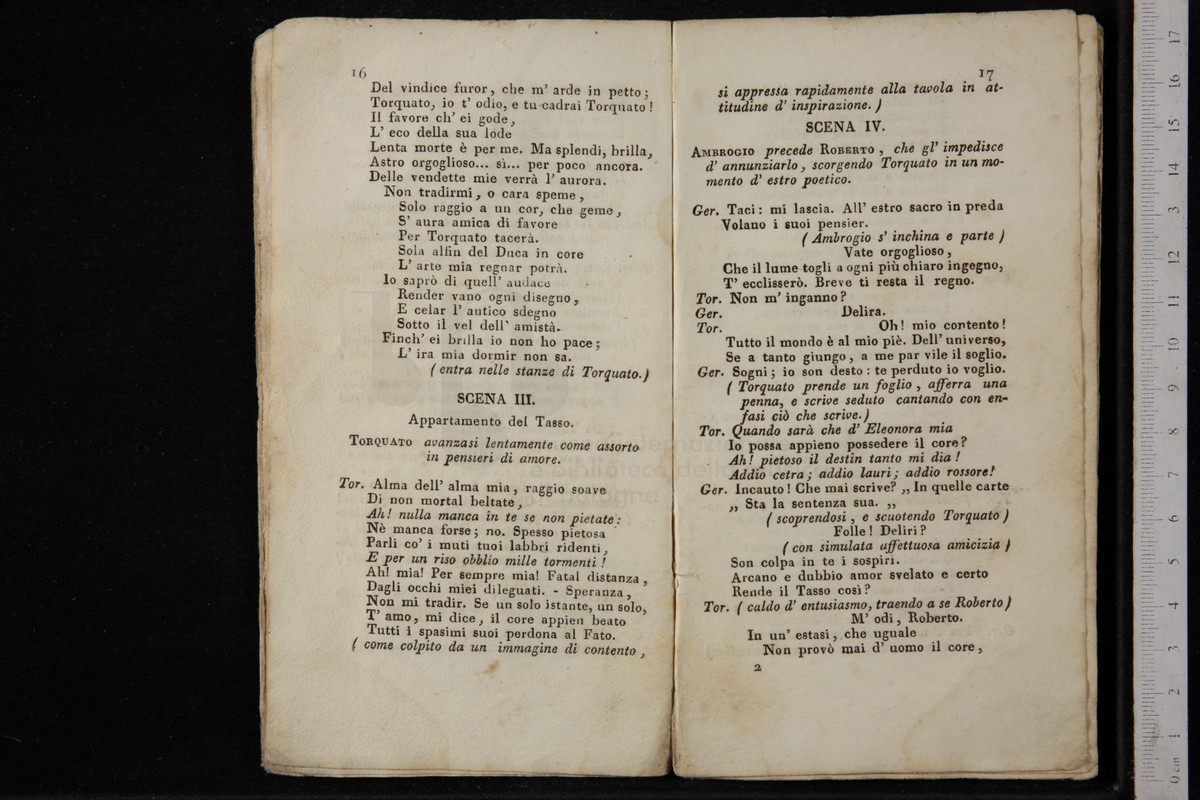 16
Del vindice furor, che m' arde in petto;
Torquato, io t' odio, e tu cadrai Torquato!
Il favore ch' ei gode,
L' eco della sua lode
Lenta morte è per me. Ma splendi, brilla,
Astro orgoglioso... sì... per poco ancora.
Delle vendette mie verrà l' aurora.
Non tradirmi, o cara speme,
Solo raggio a un cor, che geme,
S' aura amica di favore
Per Torquato tacerà.
Sola alfin del Duca in core
L' arte mia regnar potrà.
Io saprò di quell' audace
Render vano ogni disegno,
E celar l' antico sdegno
Sotto il vel dell' amistà.
Finch' ei brilla io non ho pace;
L' ira mia dormir non sa.
( entra nelle stanze di Torquato.)
SCENA III.
Appartamento del Tasso.
TORQUATO avanzasi lentamente come assorto
in pensieri di amore.
Tor. Alma dell' alma mia, raggio soave
Di non mortal beltate,
Ah! nulla manca in te se non pietate:
Nè manca forse; no. Spesso pietosa
Parli co' i muti tuoi labbri ridenti,
E per un riso obblio mille tormenti!
Ah! mia! Per sempre mia! Fatal distanza,
Dagli occhi miei dileguati. - Speranza,
Non mi tradir. Se un solo istante, un solo,
T' amo, mi dice, il core appien beato
Tutti i spasimi suoi perdona al Fato.
( come colpito da un immagine di contento,
17
si appressa rapidamente alla tavola in at-
titudine d' inspirazione. )
SCENA IV.
AMBROGIO precede ROBERTO, che gl' impedisce
d' annunziarlo, scorgendo Torquato in un mo-
mento d' estro poetico.
Ger. Taci: mi lascia. All' estro sacro in preda
Volano i suoi pensier.
( Ambrogio s' inchina e parte )
Vate orgoglioso,
Che il lume togli a ogni più chiaro ingegno,
T' ecclisserò. Breve ti resta il regno.
Tor. Non m' inganno?
Ger. Delira.
Tor. Oh! mio contento!
Tutto il mondo è al mio piè. Dell' universo,
Se a tanto giungo, a me par vile il soglio.
Ger. Sogni; io son desto: te perduto io voglio.
( Torquato prende un foglio, afferra una
penna, e scrive seduto cantando con en-
fasi ciò che scrive.)
Tor. Quando sarà che d' Eleonora mia
Io possa appieno possedere il core?
Ah! pietoso il destin tanto mi dia!
Addio cetra; addio lauri; addio rossore!
Ger. Incauto! Che mai scrive? „ In quelle carte
„ Sta la sentenza sua. „
( scoprendosi, e scuotendo Torquato )
Folle! Deliri?
( con simulata affettuosa amicizia )
Son colpa in te i sospiri.
Arcano e dubbio amor svelato e certo
Rende il Tasso così?
Tor. ( caldo d' entusiasmo, traendo a se Roberto )
M' odi, Roberto.
In un' estasi, che uguale
Non provò mai d' uomo il core,
2
0 cm 1 2 3 4 5 6 7 8 9 10 11 12 13 14 15 16 17